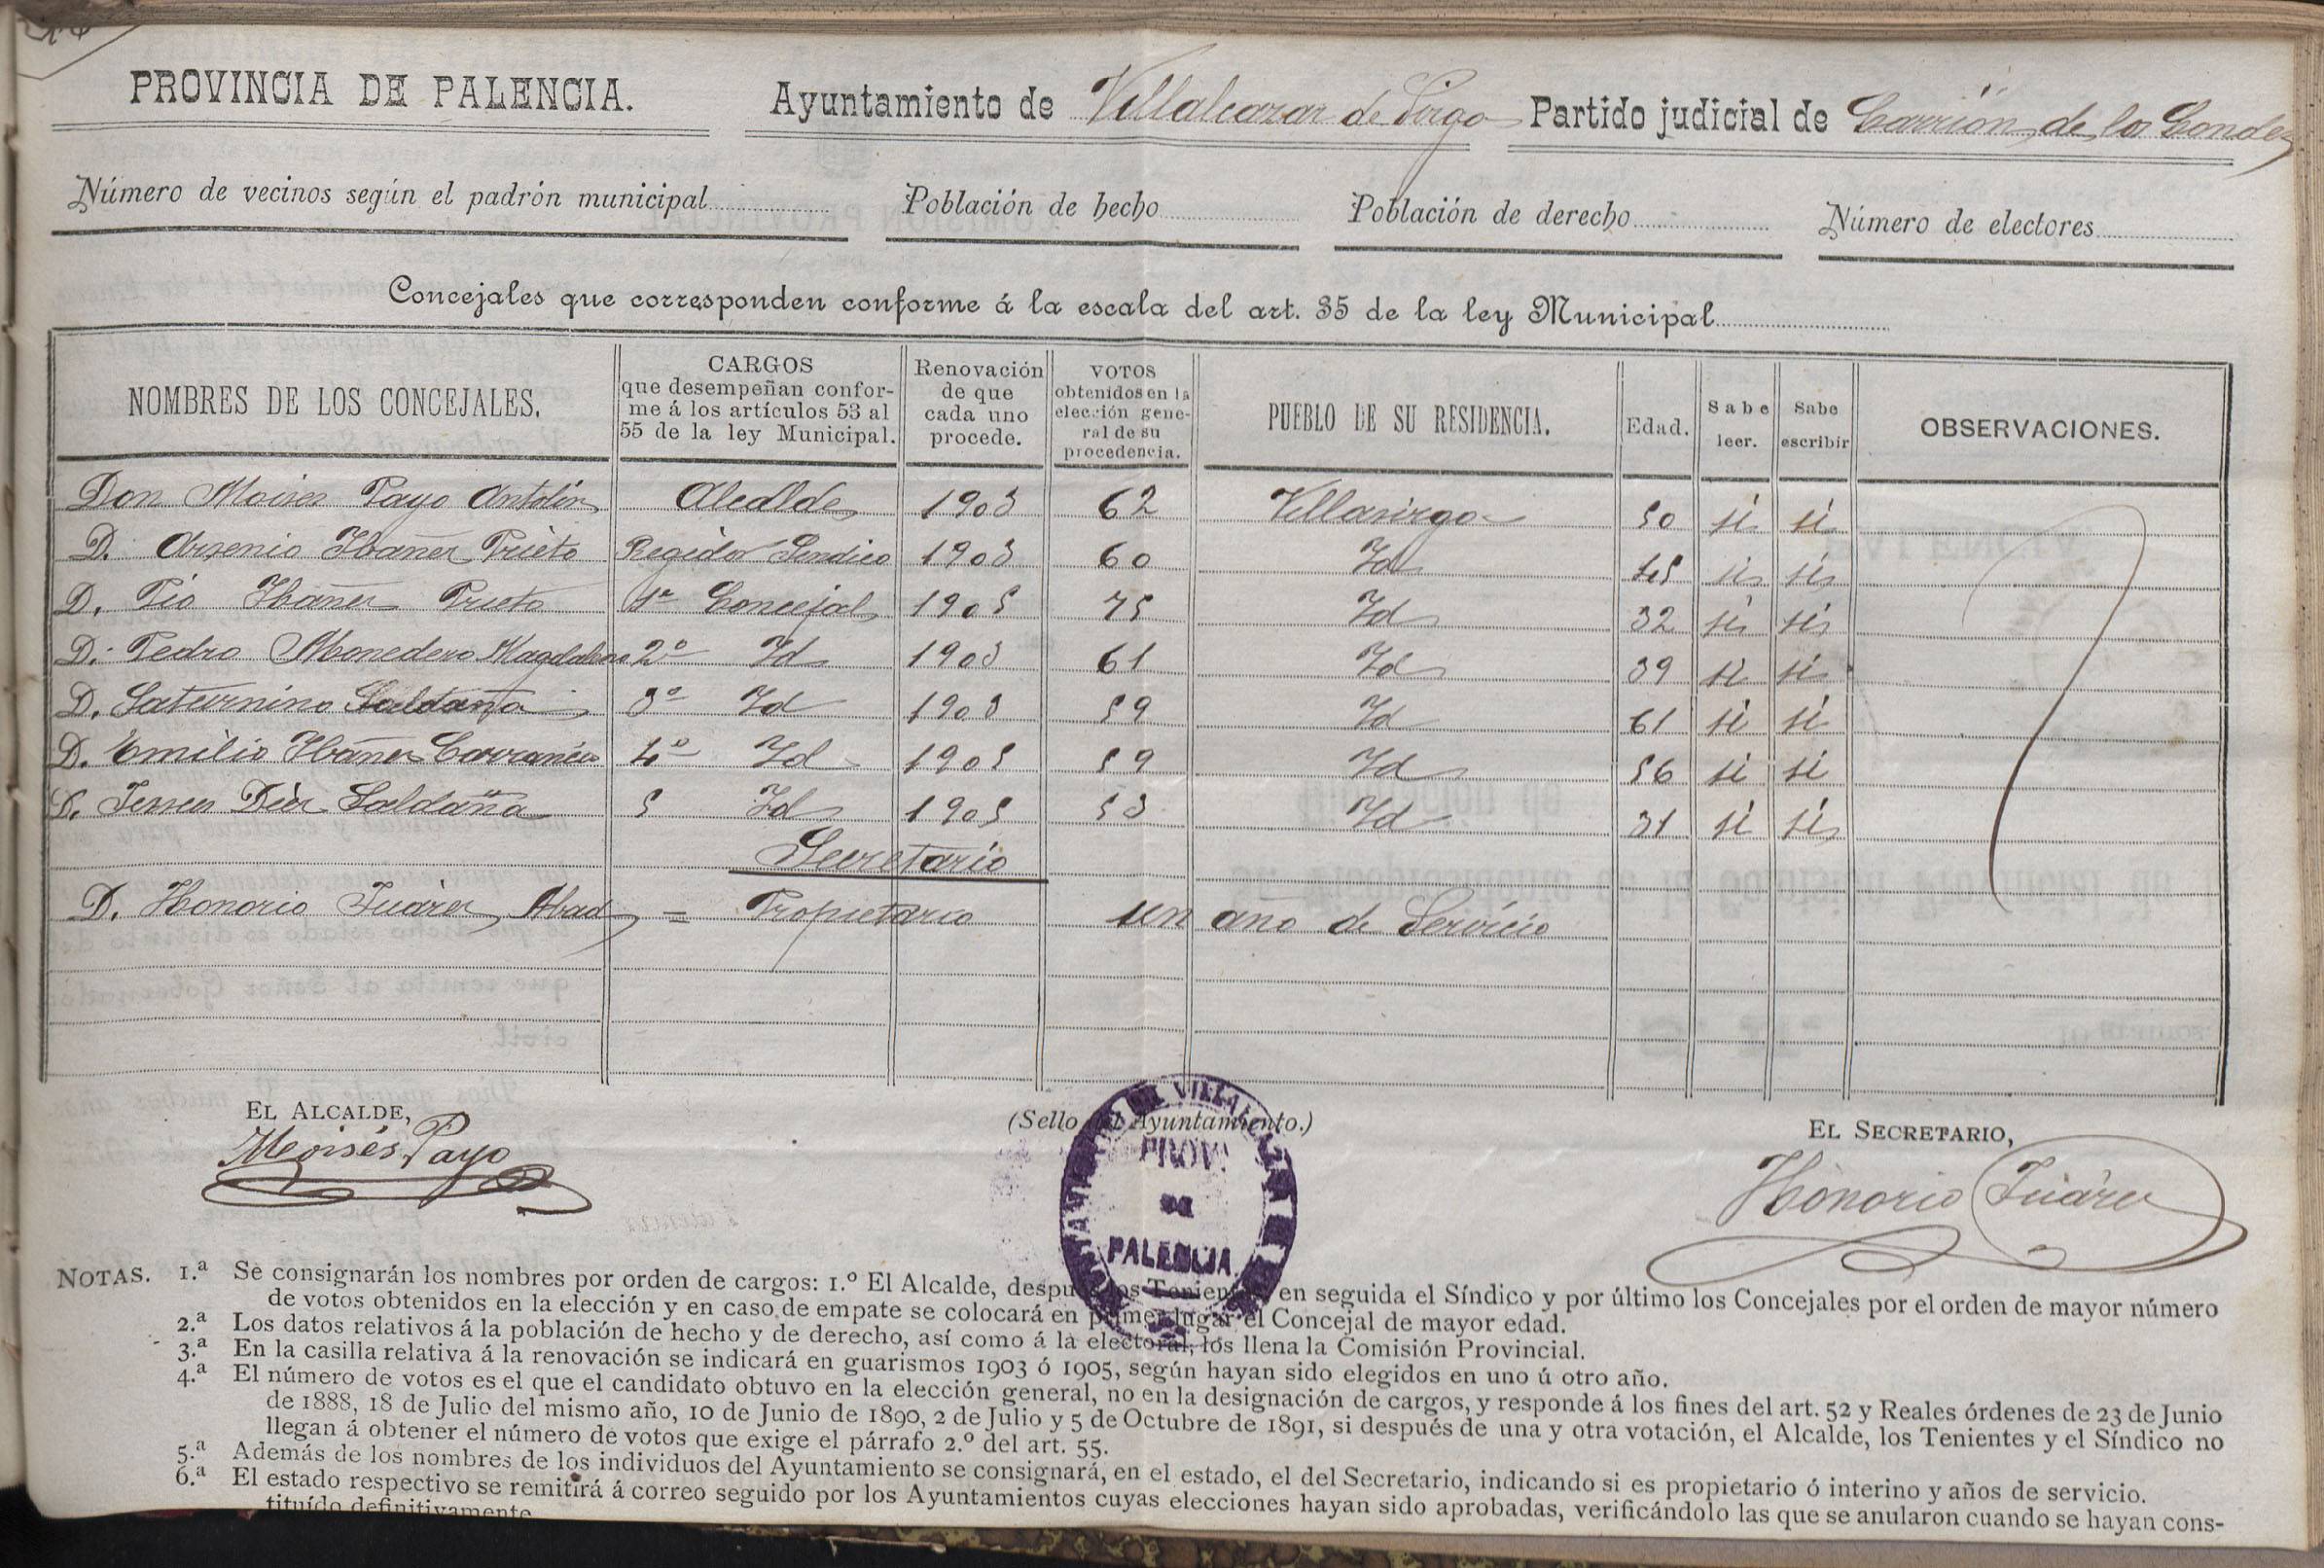 PROVINCIA DE PALENCIA. Ayuntamiento de Villalcazar de Sirga Partido judicial de Carrión de los Condes
Número de vecinos según el padrón municipal Población de hecho Población de derecho Número de electores
Concejales que corresponden conforme á la escala del art. 35 de la ley Municipal
NOMBRES DE LOS CONCEJALES. CARGOS que desempeñan conforme á los artículos 53 al 55 de la ley Municipal. Renovación de que cada uno procede. VOTOS obtenidos en la elección general de su procedencia. PUEBLO DE SU RESIDENCIA. Edad. Sabe leer. Sabe escribir OBSERVACIONES.
Don Moises Payo Antolin Alcalde 1903 62 Villasirga 50 si si
D. Arsenio Ibañez Prieto Regidor Sendico 1903 60 Id 45 si si
D. Pio Ibañez Prieto 1er Concejal 1905 75 Id 32 si si
D. Pedro Monedero Magdaleno 2º Id 1903 61 Id 39 si si
D. Saturnino Saldaña 3º Id 1903 59 Id 61 si si
D. Emilio Ibañez Carrancio 4º Id 1905 59 Id 56 si si
D. Jesus Diez Saldaña 5 Id 1905 53 Id 31 si si
Secretario
D. Honorio Juárez Abad = Propietario un año de Servicio
EL ALCALDE, (Sello del Ayuntamiento.) EL SECRETARIO,
Moisés Payo Honorio Juárez
PROV.
DE
PALENCIA
NOTAS. 1.ª Se consignarán los nombres por orden de cargos: 1.º El Alcalde, después los Tenientes, en seguida el Síndico y por último los Concejales por el orden de mayor número
de votos obtenidos en la elección y en caso de empate se colocará en primer lugar el Concejal de mayor edad.
2.ª Los datos relativos á la población de hecho y de derecho, así como á la electoral, los llena la Comisión Provincial.
3.ª En la casilla relativa á la renovación se indicará en guarismos 1903 ó 1905, según hayan sido elegidos en uno ú otro año.
4.ª El número de votos es el que el candidato obtuvo en la elección general, no en la designación de cargos, y responde á los fines del art. 52 y Reales órdenes de 23 de Junio
de 1888, 18 de Julio del mismo año, 10 de Junio de 1890, 2 de Julio y 5 de Octubre de 1891, si después de una y otra votación, el Alcalde, los Tenientes y el Síndico no
llegan á obtener el número de votos que exige el párrafo 2.º del art. 55.
5.ª Además de los nombres de los individuos del Ayuntamiento se consignará, en el estado, el del Secretario, indicando si es propietario ó interino y años de servicio.
6.ª El estado respectivo se remitirá á correo seguido por los Ayuntamientos cuyas elecciones hayan sido aprobadas, verificándolo las que se anularon cuando se hayan cons-
tituído definitivamente